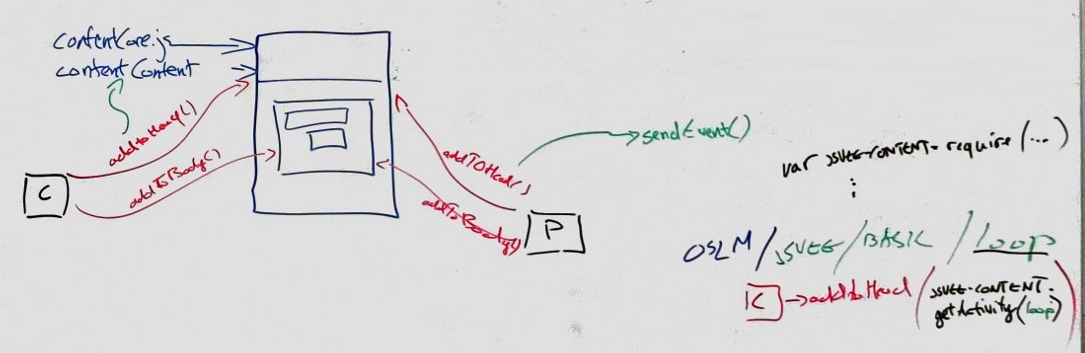 contentCore.js
contentContent
addtoHead()
addToBody()
C
addTOHead()
addToBody()
P
sendEvent()
var JSVEE-CONTENT = require(...)
OSLM/JSVEE/BASIK/loop
C → addtoHead (JSVEE-CONTENT.
getActivity(loop))